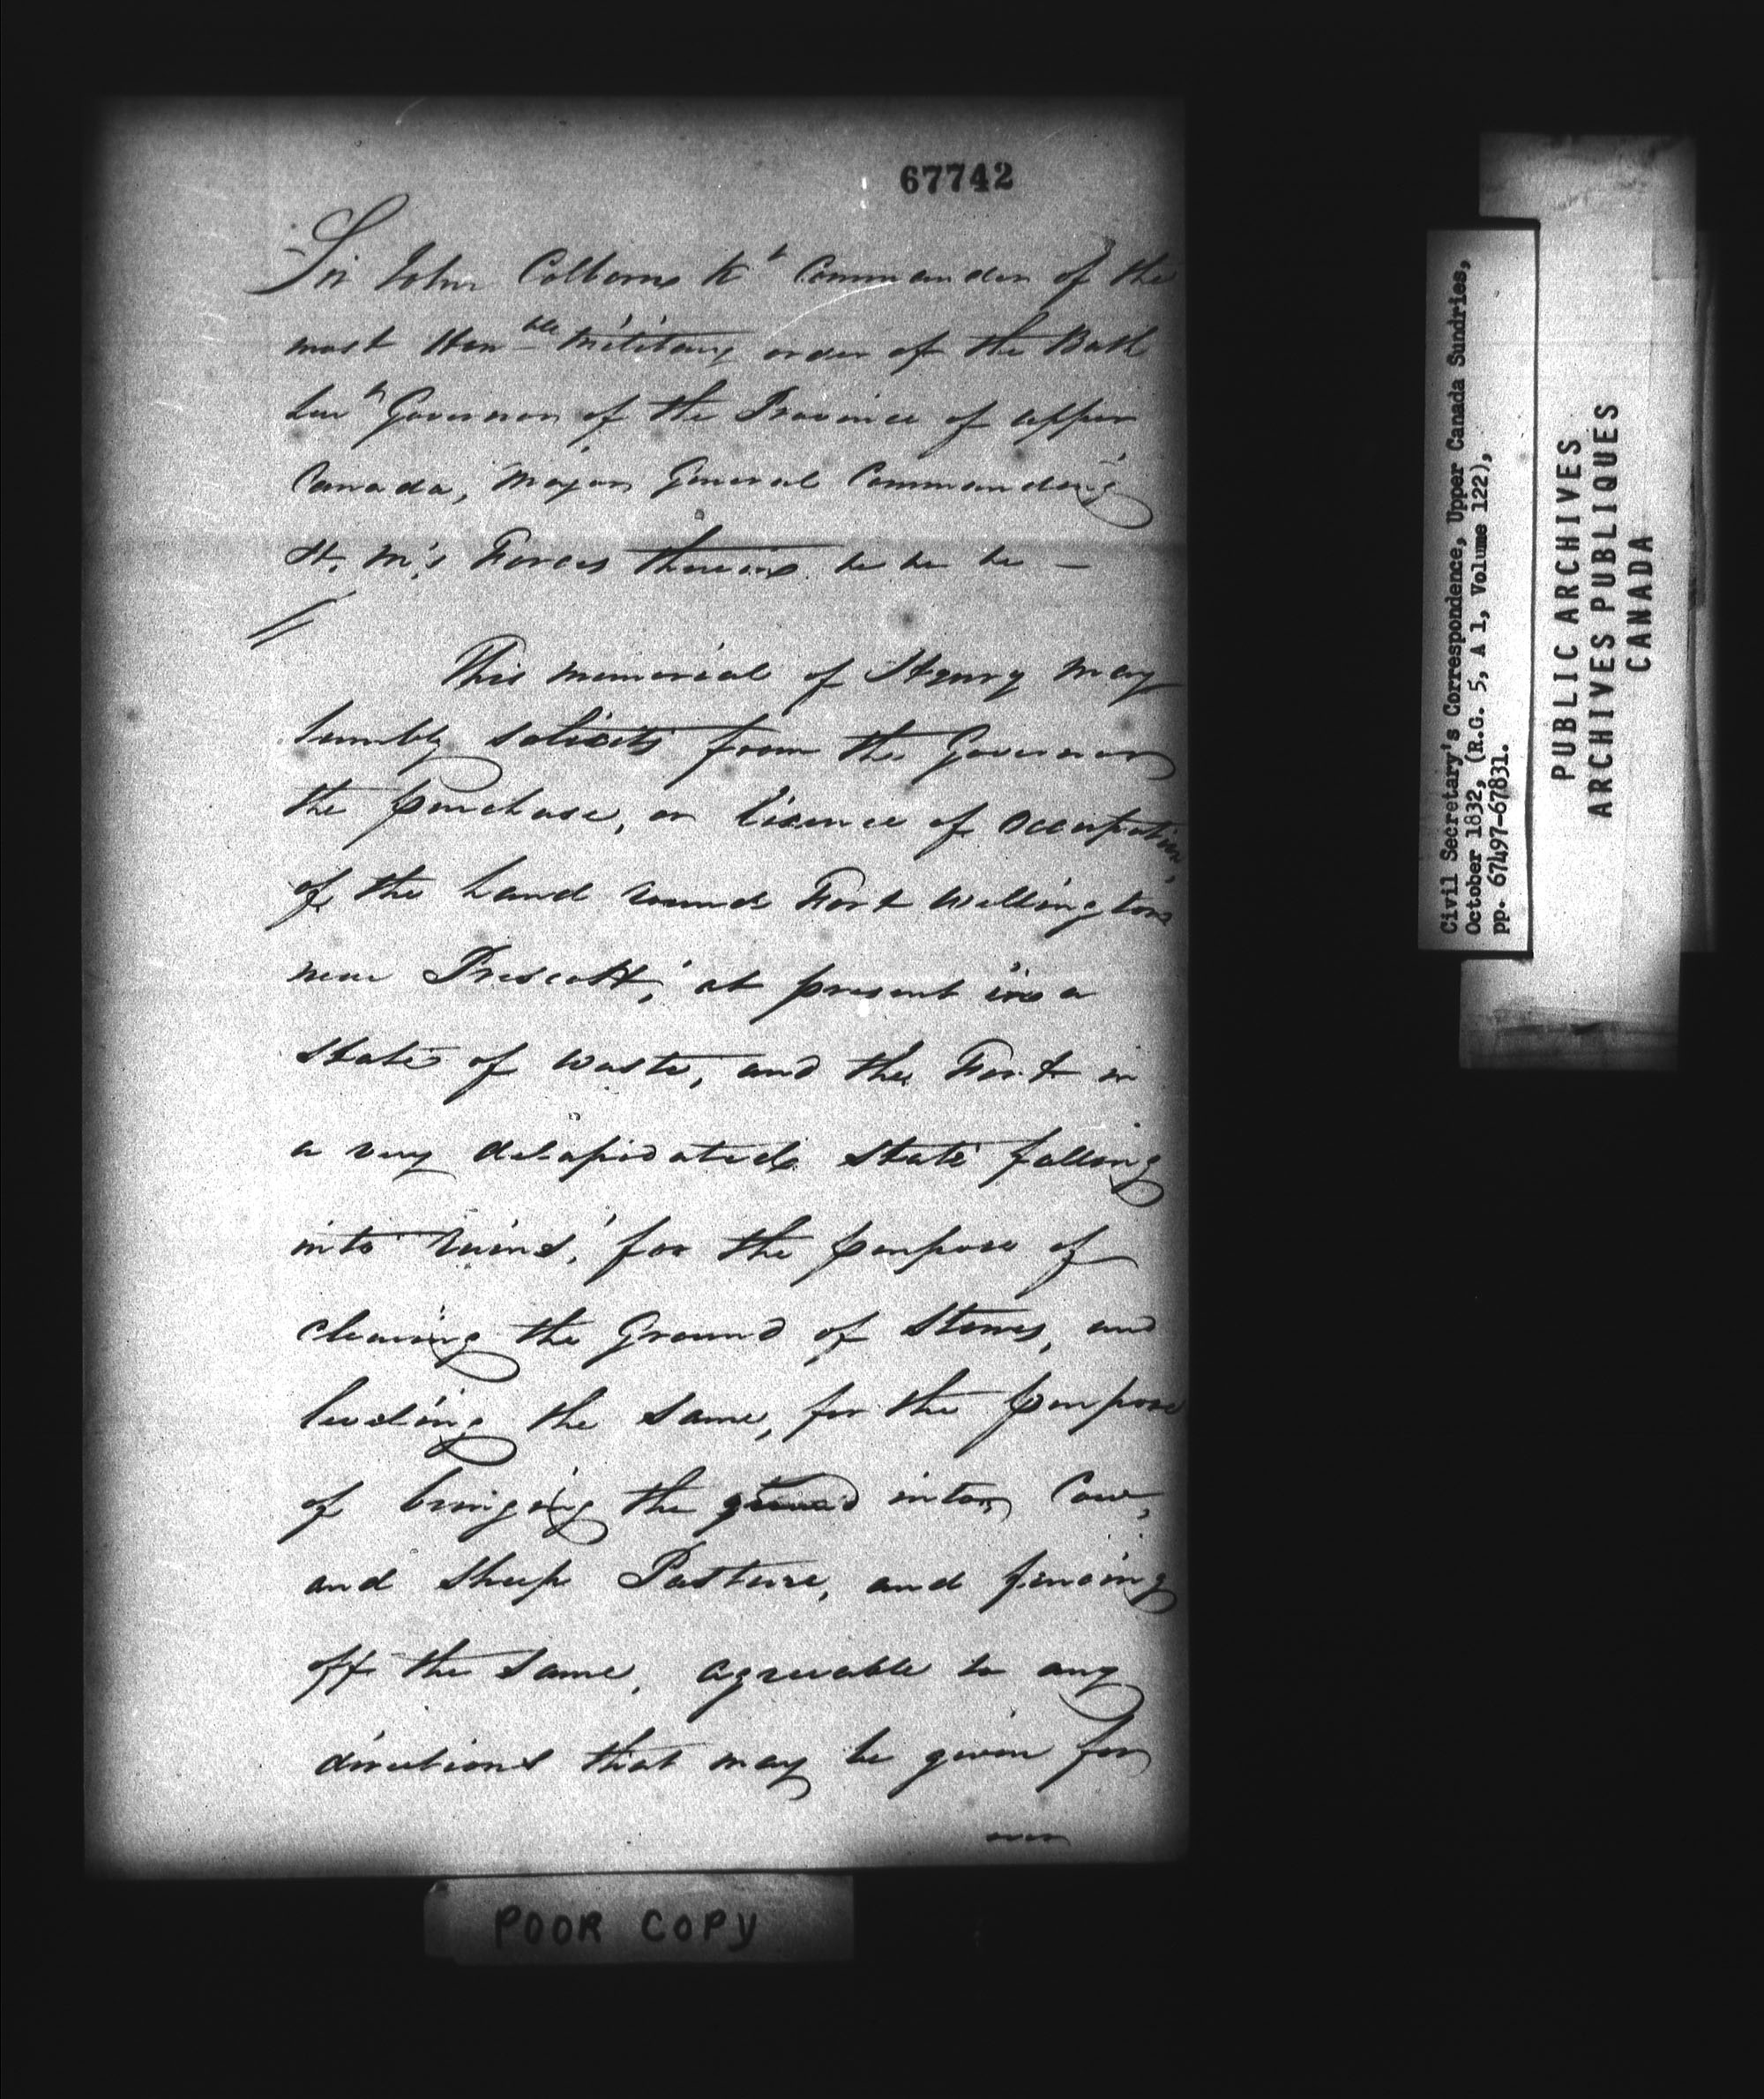 67742
Sir John Colborne Kt Commander of the
most Honble Military order of the Bath
Leut Governor of the Province of upper
Canada, Major General Commanding
H. M's Forces therein &c &c &c —
This memorial of Henry May
humbly solicits from the Governor
the Purchase, or Lisence of Occupation
of the Land round Fort Wellington
near Prescott, at present in a
state of waste, and the Fort in
a very delapidated state falling
into ruins, for the purpose of
clearing the Ground of Stones, and
leveling the same, for the purpose
of bringing the ground into Cow,
and sheep Pasture, and fencing
off the same, agreeable to any
directions that may be given for
over
POOR COPY
Civil Secretary's Correspondence, Upper Canada Sundries,
October 1832, (R.G. 5, A 1, Volume 122),
pp. 67497-67831.
PUBLIC ARCHIVES
ARCHIVES PUBLIQUES
CANADA